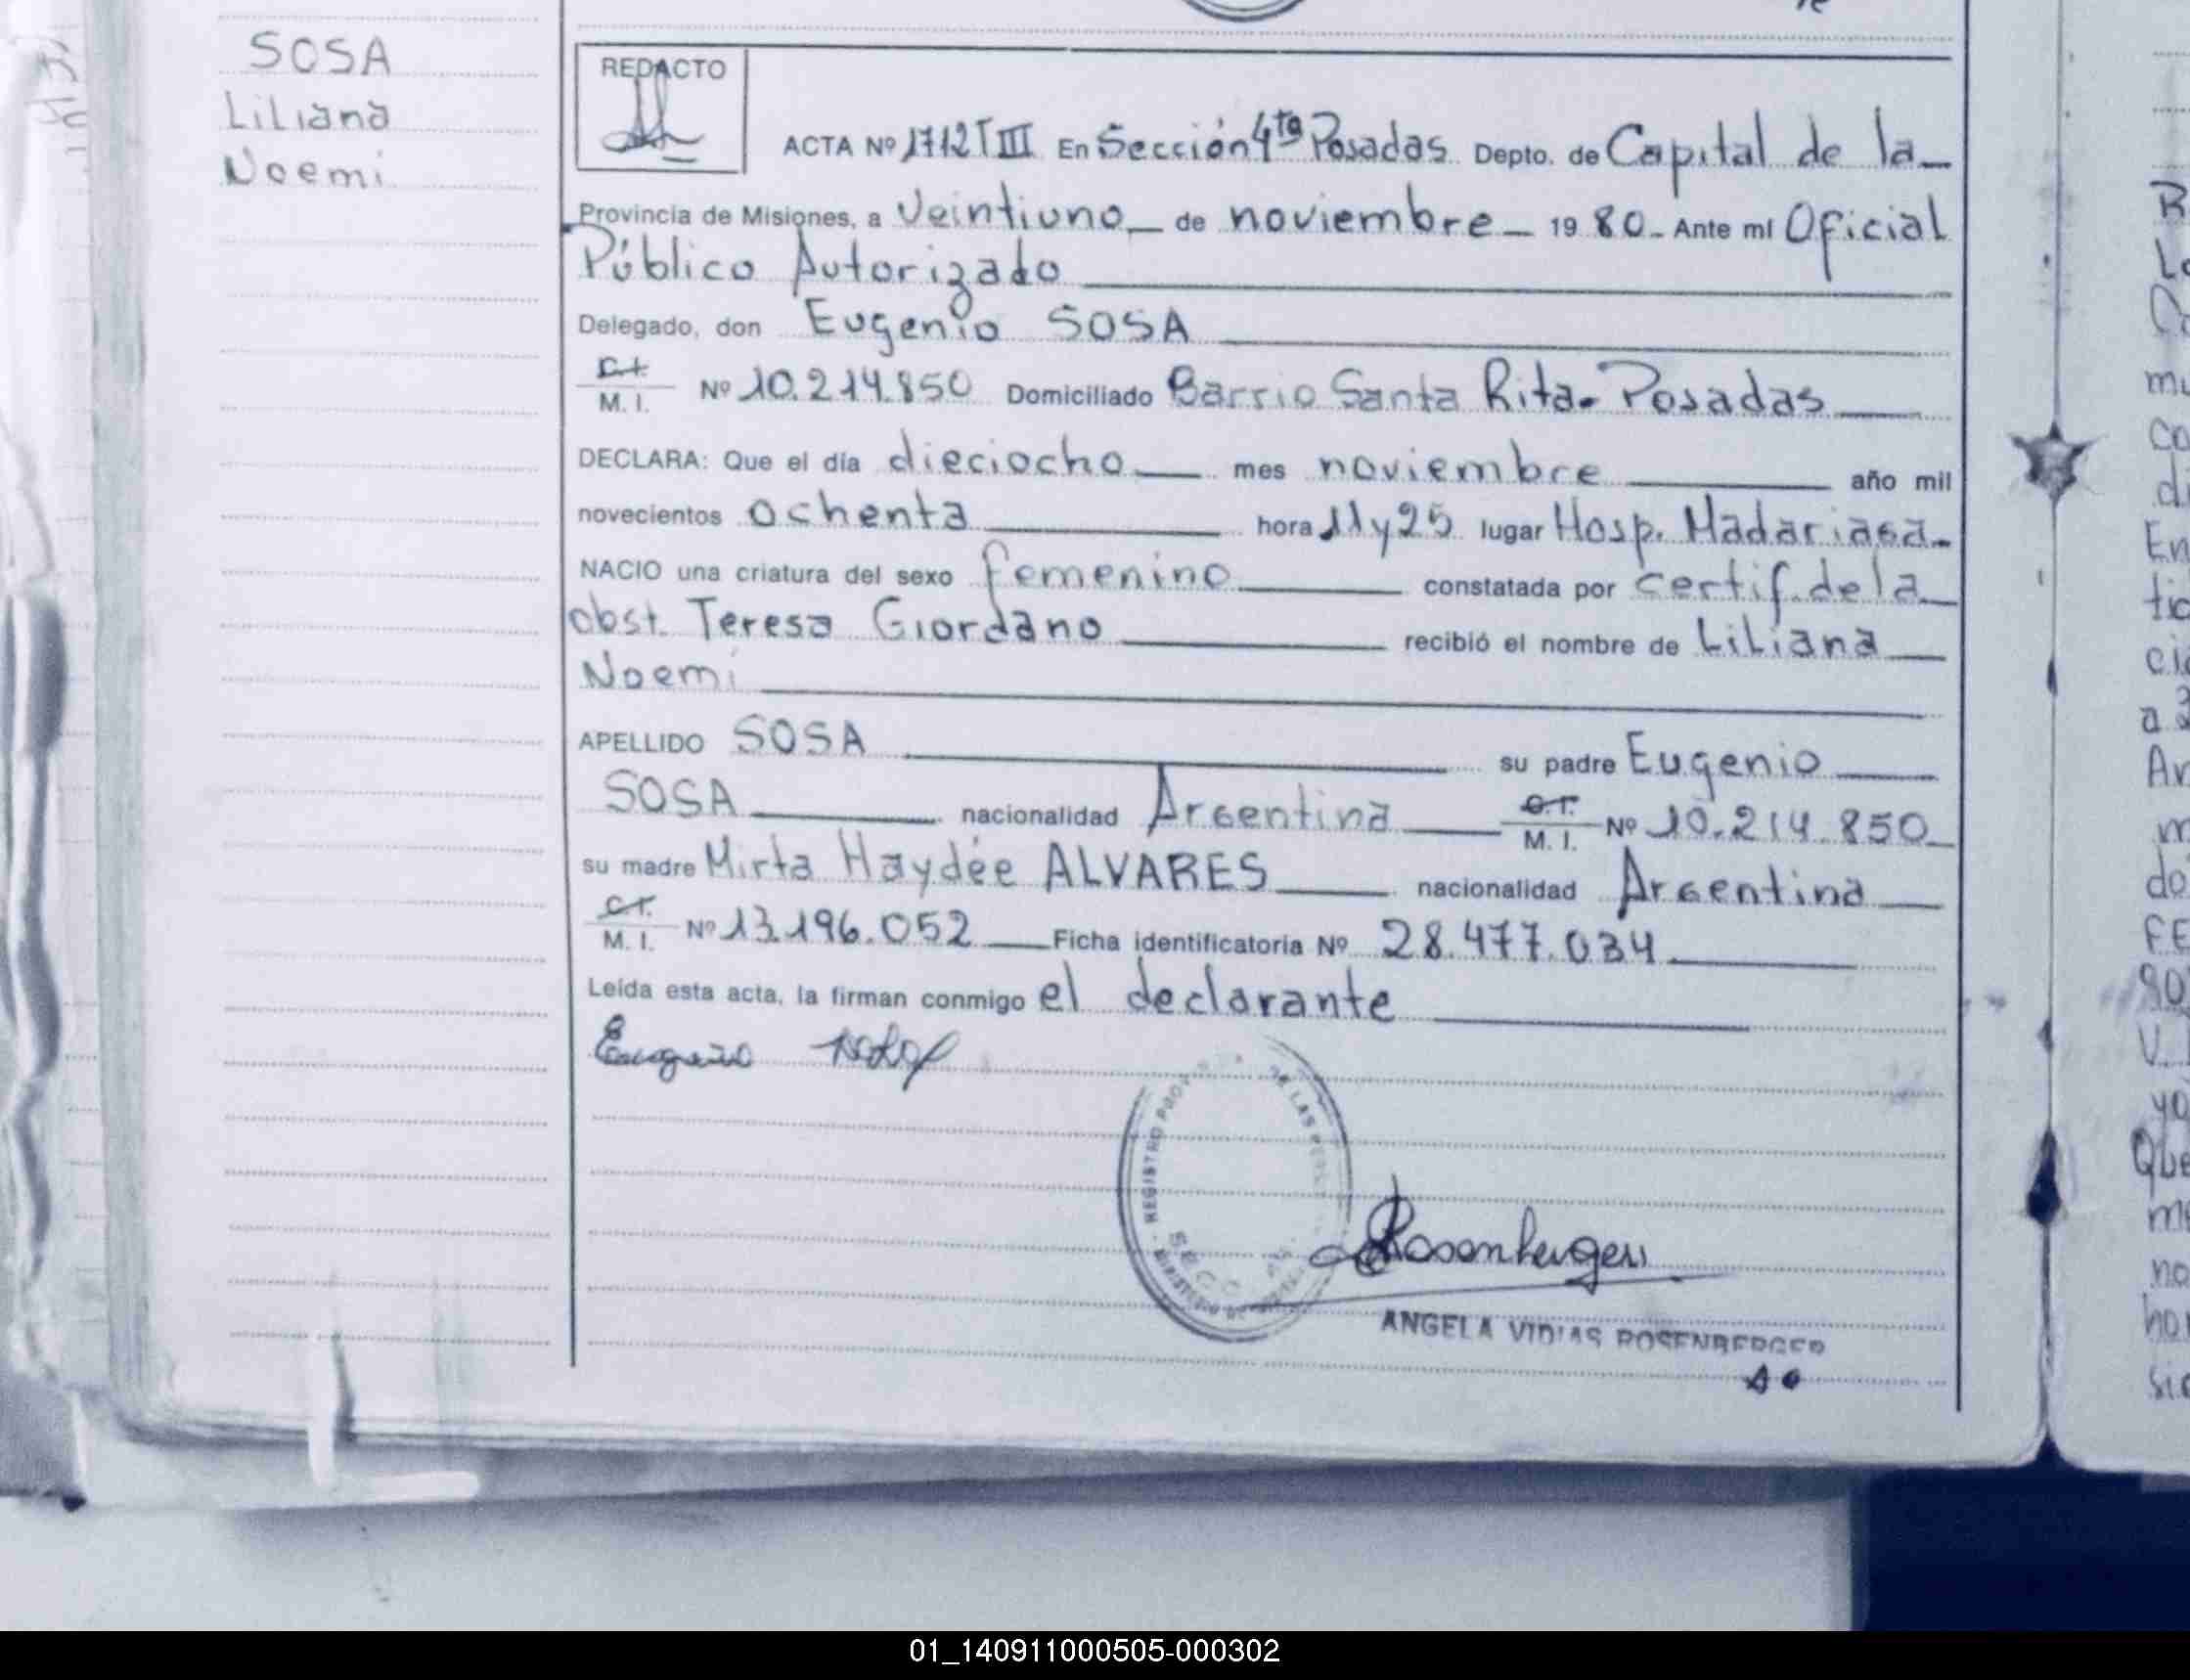 SOSA
Liliana
Noemi
REDACTO
ACTA Nº 1712 T III En Sección 4ta Posadas Depto. de Capital de la
Provincia de Misiones, a Veintiuno de noviembre 19 80 Ante mí Oficial
Público Autorizado
Delegado, don Eugenio SOSA
M. I. Nº 10.214.850 Domiciliado Barrio Santa Rita - Posadas
DECLARA: Que el día dieciocho mes noviembre año mil
novecientos ochenta hora 11 y 25 lugar Hosp. Madariaga
NACIO una criatura del sexo femenino constatada por certif. de la
obst. Teresa Giordano recibió el nombre de Liliana
Noemi
APELLIDO SOSA su padre Eugenio
SOSA nacionalidad Argentina C.I. M. I. Nº 10.214.850
su madre Mirta Haydée ALVARES nacionalidad Argentina
C.I. M. I. Nº 13.196.052 Ficha identificatoria Nº 28.477.034
Leída esta acta, la firman conmigo el declarante
Eugenio
REGISTRO PROV DE LAS
SECC
Rosenberger
ANGELA VIDIAS ROSENBERGER
01_140911000505-000302